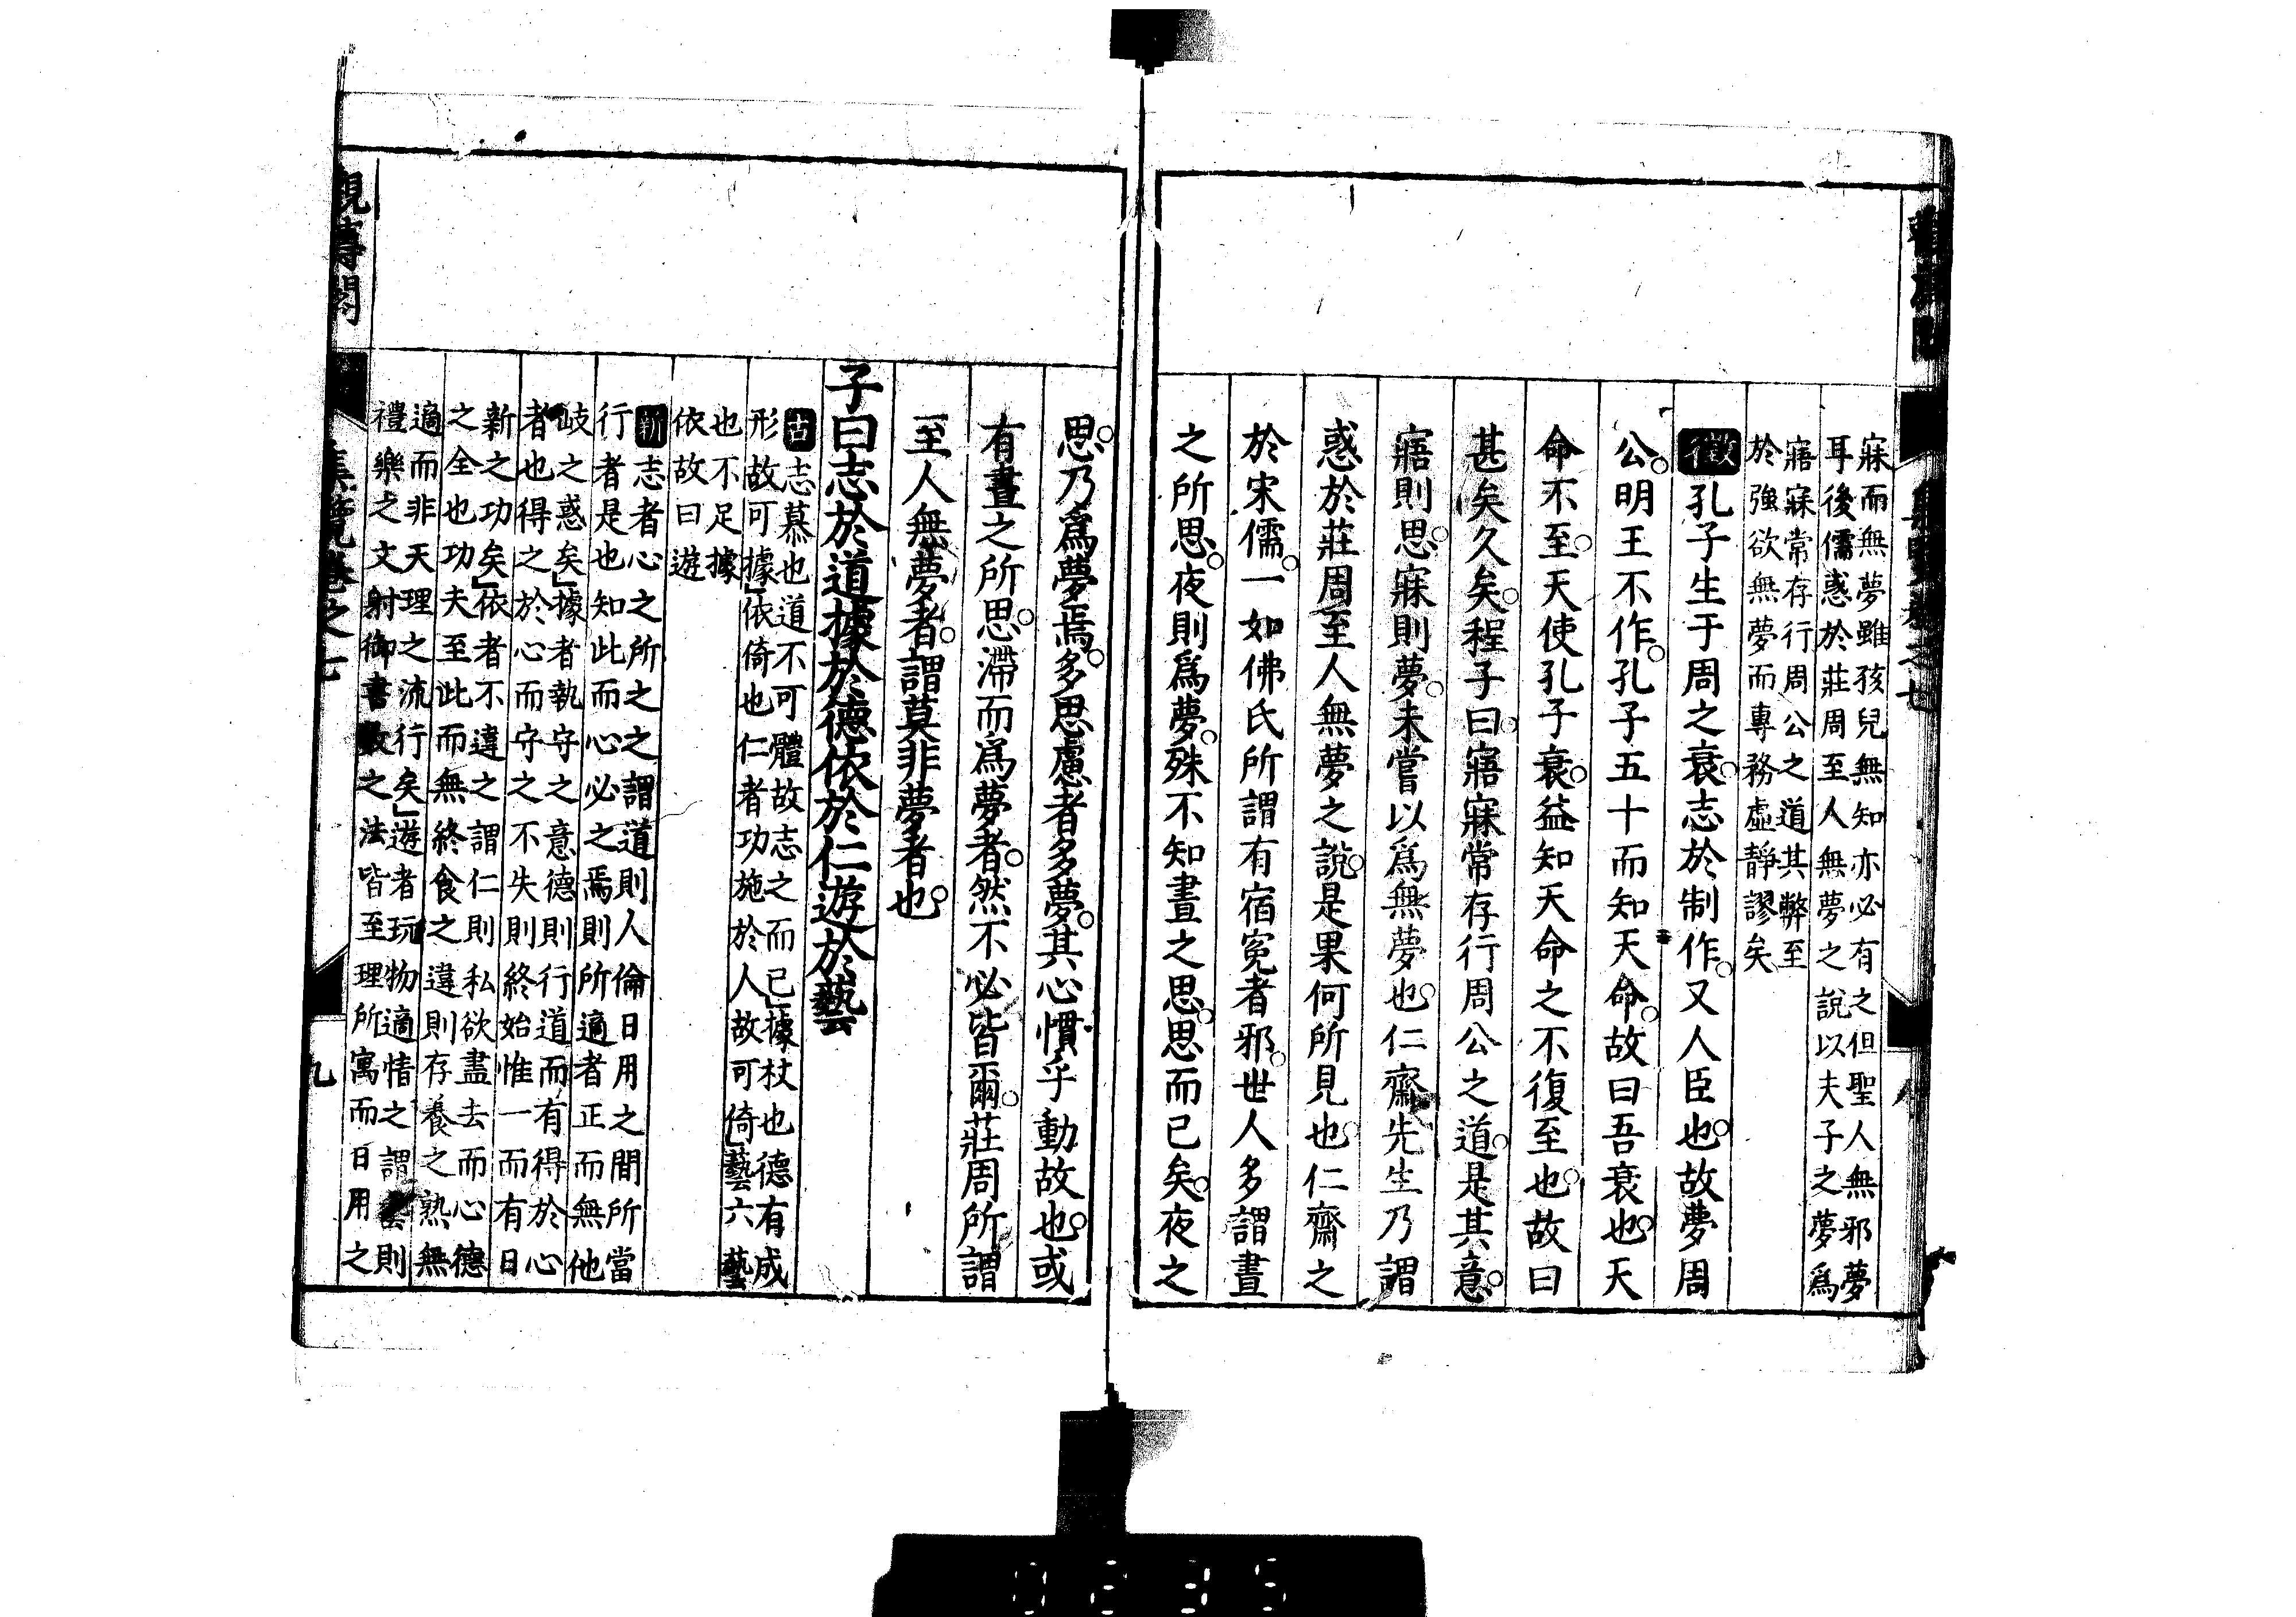 寐而無夢雖孩兒無知亦必有之但聖人無邪夢
耳後儒惑於莊周至人無夢之說以夫子之夢爲
寤寐常存行周公之道其弊至
於強欲無夢而專務虛靜謬矣
徵孔子生于周之衰。志於制作。又人臣也。故夢周
公。明王不作。孔子五十而知天命。故曰吾衰也。天
命不至。天使孔子衰。益知天命之不復至也。故曰
甚矣久矣。程子曰。寤寐常存行周公之道。是其意。
寤則思。寐則夢。未嘗以爲無夢也。仁齋先生乃謂
惑於莊周至人無夢之說。是果何所見也。仁齋之
於宋儒。一如佛氏所謂有宿寃者邪。世人多謂晝
之所思。夜則爲夢。殊不知晝之思。思而已矣。夜之
思。乃爲夢焉。多思慮者多夢。其心慣乎動故也。或
有晝之所思。滯而爲夢者。然不必皆爾。莊周所謂
至人無夢者。謂莫非夢者也。
子曰志於道據於德依於仁遊於藝
古志慕也道不可體故志之而已」據杖也德有成
形故可據」依倚也仁者功施於人故可倚」藝六藝
也不足據
依故曰遊
新志者心之所之之謂道則人倫日用之間所當
行者是也知此而心必之焉則所適者正而無他
岐之惑矣」據者執守之意德則行道而有得於心
者也得之於心而守之不失則終始惟一而有日
新之功矣」依者不違之謂仁則私欲盡去而心德
之全也功夫至此而無終食之違則存養之熟無
適而非天理之流行矣」遊者玩物適情之謂藝則
禮樂之文射御書數之法皆至理所寓而日用之
集覽卷之七
九